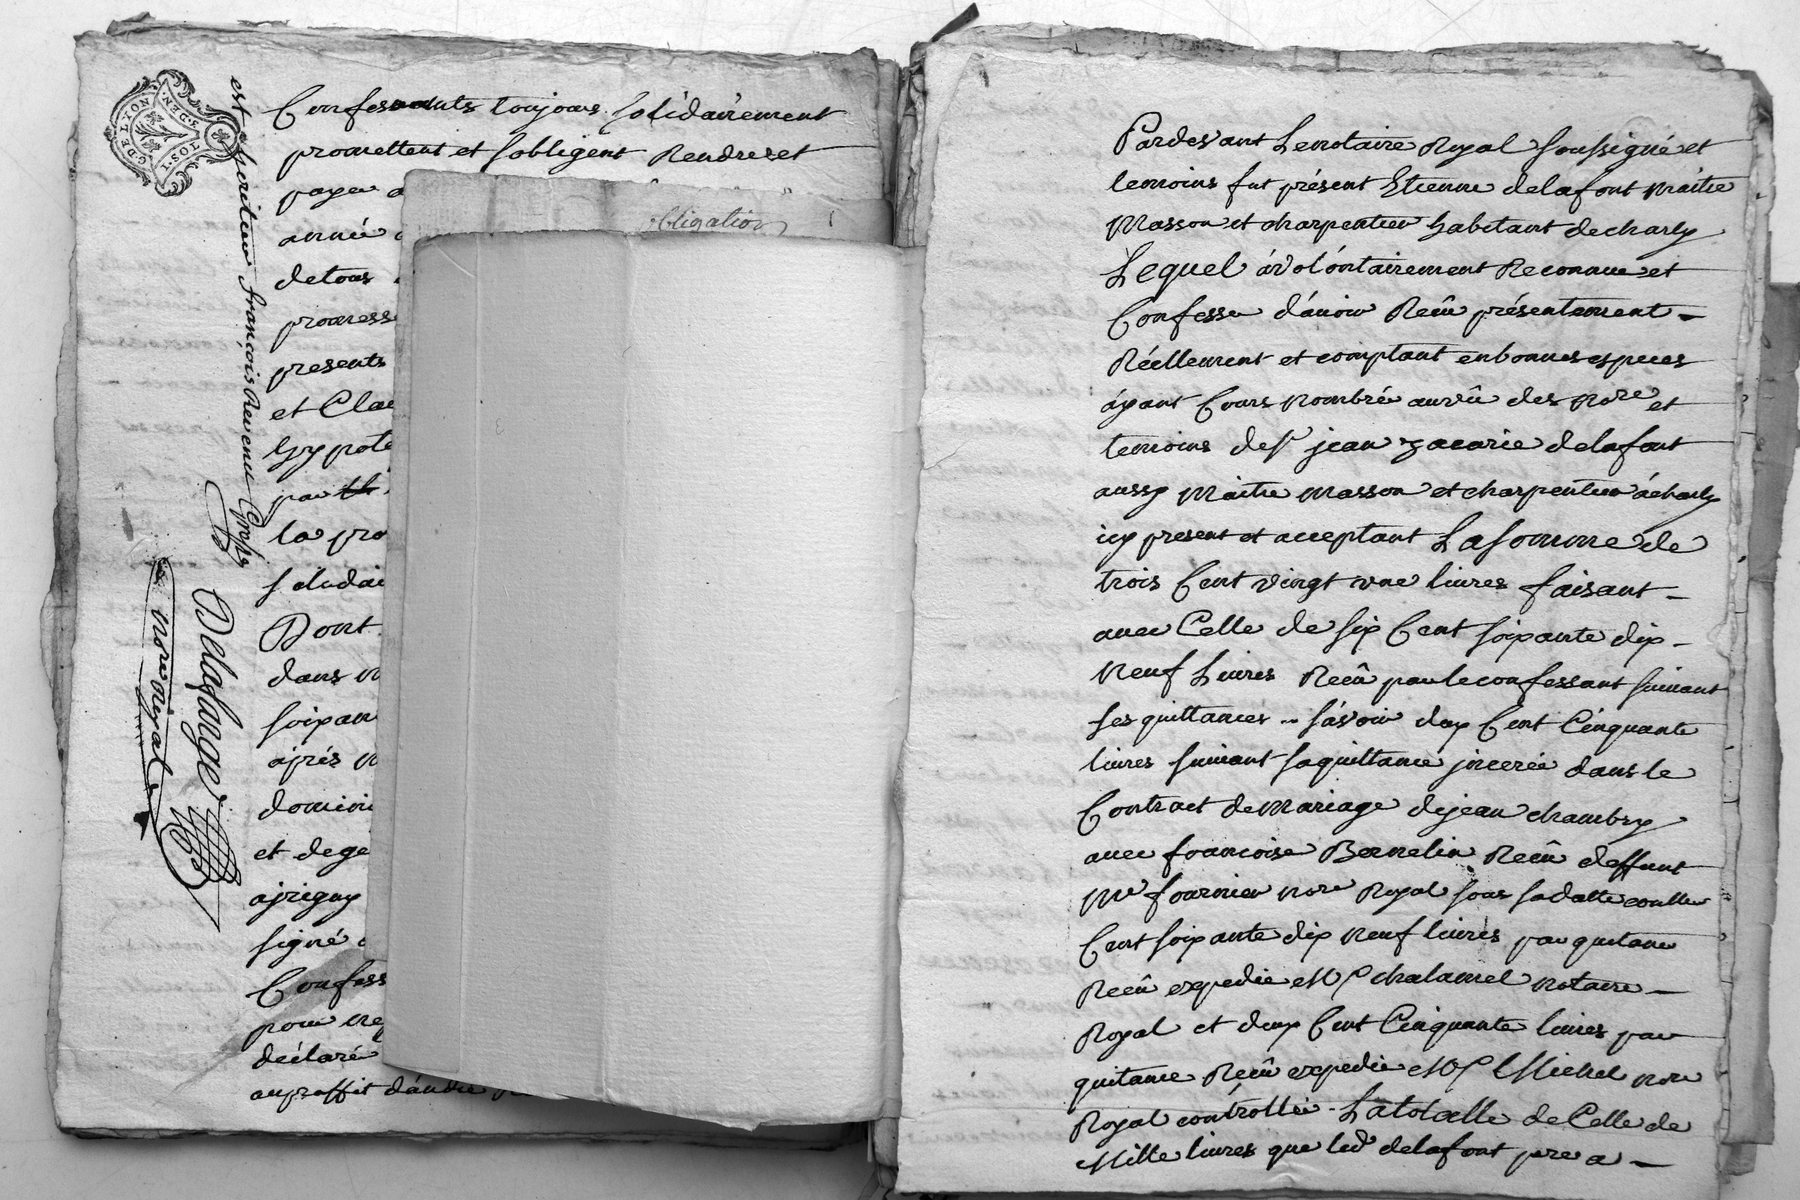 G. DE LYON
DEN. 8. 1. SOL
Confessants toujours solidairement
promettent et sobligent Rendre et
payer
année
detous
promesse
presents
et Clau
hypote
par
la pro
solidai
Dont
dans
soixan
aprés
domini
et dege
aprigny
signé
Confess
pour
déclaré
auproffit dándre
est heritier françois Revenu
Delafange
nore Royal
obligation
Pardevant Lenotaire Royal soussigné et
temoins fut présent Etienne delafont maitre
Masson et charpentier habitant decharly
Lequel á volóntairement Reconnu et
Confesse d'ávoir Reçû présentement
Réellement et comptant enbonnes especes
áyant Cours Nombrée auvû des Nore et
temoins de sr jean zacarie delafont
aussy Maitre Masson et charpentier ácharly
icy present et acceptant La somme de
trois Cent vingt une livres faisant
avec Celle de six Cent soixante dix
Neuf Livres Reçû par le confessant suivant
ses quittances sávoir deux Cent Cinquante
livres suivant saquittance jncerée dans le
Contract de Mariage dejean chambry
avec francoise Bernelin Reçû deffunt
Me fournier Nore Royal sous sadatte controllé
Cent soixante dix neuf livres par quitance
Reçû expedié Me chalamel notaire
Royal et deux Cent Cinquante livres par
quitance Reçû expedié Me Michel nore
Royal contróllée. La totalle de Celle de
Mille livres que led delafont pere a